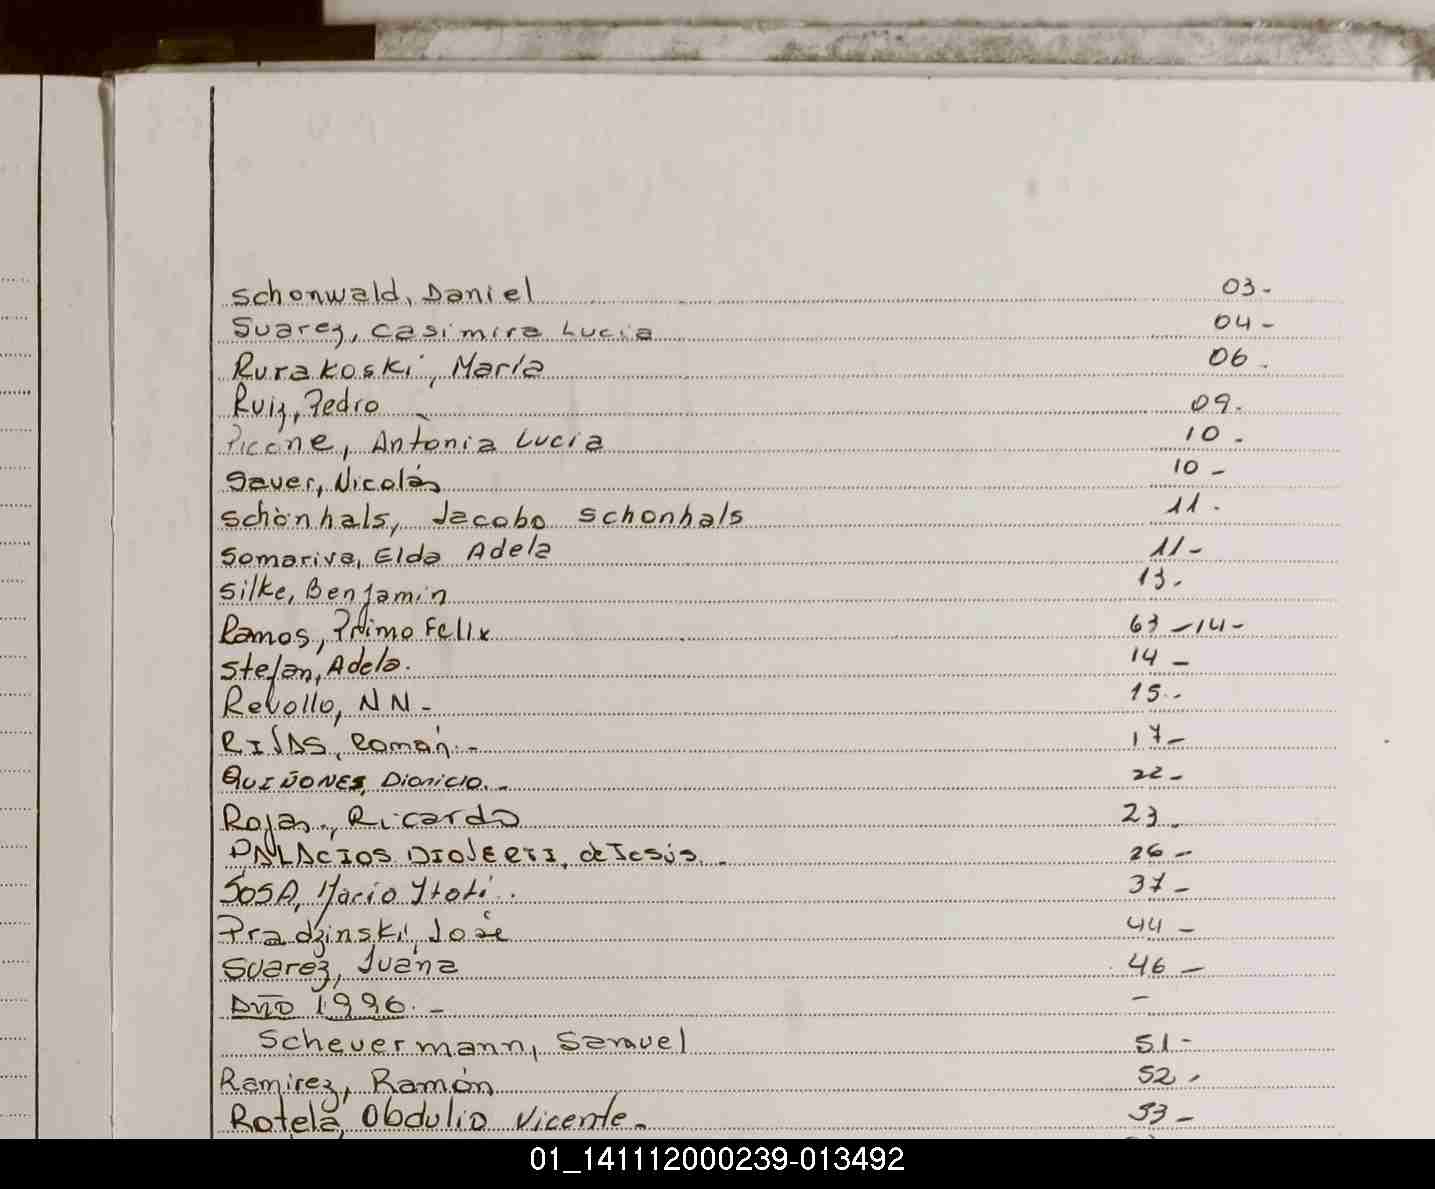 Schonwald, Daniel 03-
Suarez, Casimira Lucia 04-
Rurakoski, María 06-
Ruiz, Pedro 09-
Piccne, Antonia Lucia 10-
Sauer, Nicolás 10-
Schonhals, Jacobo Schonhals 11-
Somariva, Elda Adela 11-
Silke, Benjamin 13-
Ramos, Primo Felix 63-14-
Stefan, Adela. 14-
Revollo, NN- 15-
RIVAS, Román.- 17-
QUIÑONES, Dionicio.- 22-
Rojas, Ricardo 23-
PALACIOS de Jesús.- 26-
SOSA, Mario Itatí.. 37-
Pradzinski, José 44-
Suarez, Juana 46-
AÑO 1996.- -
Scheuermann, Samuel 51-
Ramirez, Ramón 52-
Rotela, Obdulio Vicente.- 53-
01_141112000239-013492